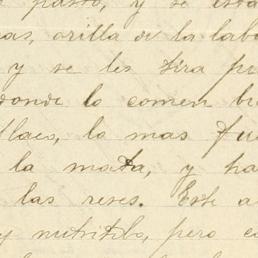 pasto, y se esta
as, orilla de la lab
y se les tira p
donde lo comen bi
llaco, lo mas fue
la mata, y ha
las reses. Este a
y nutritibo, pero c